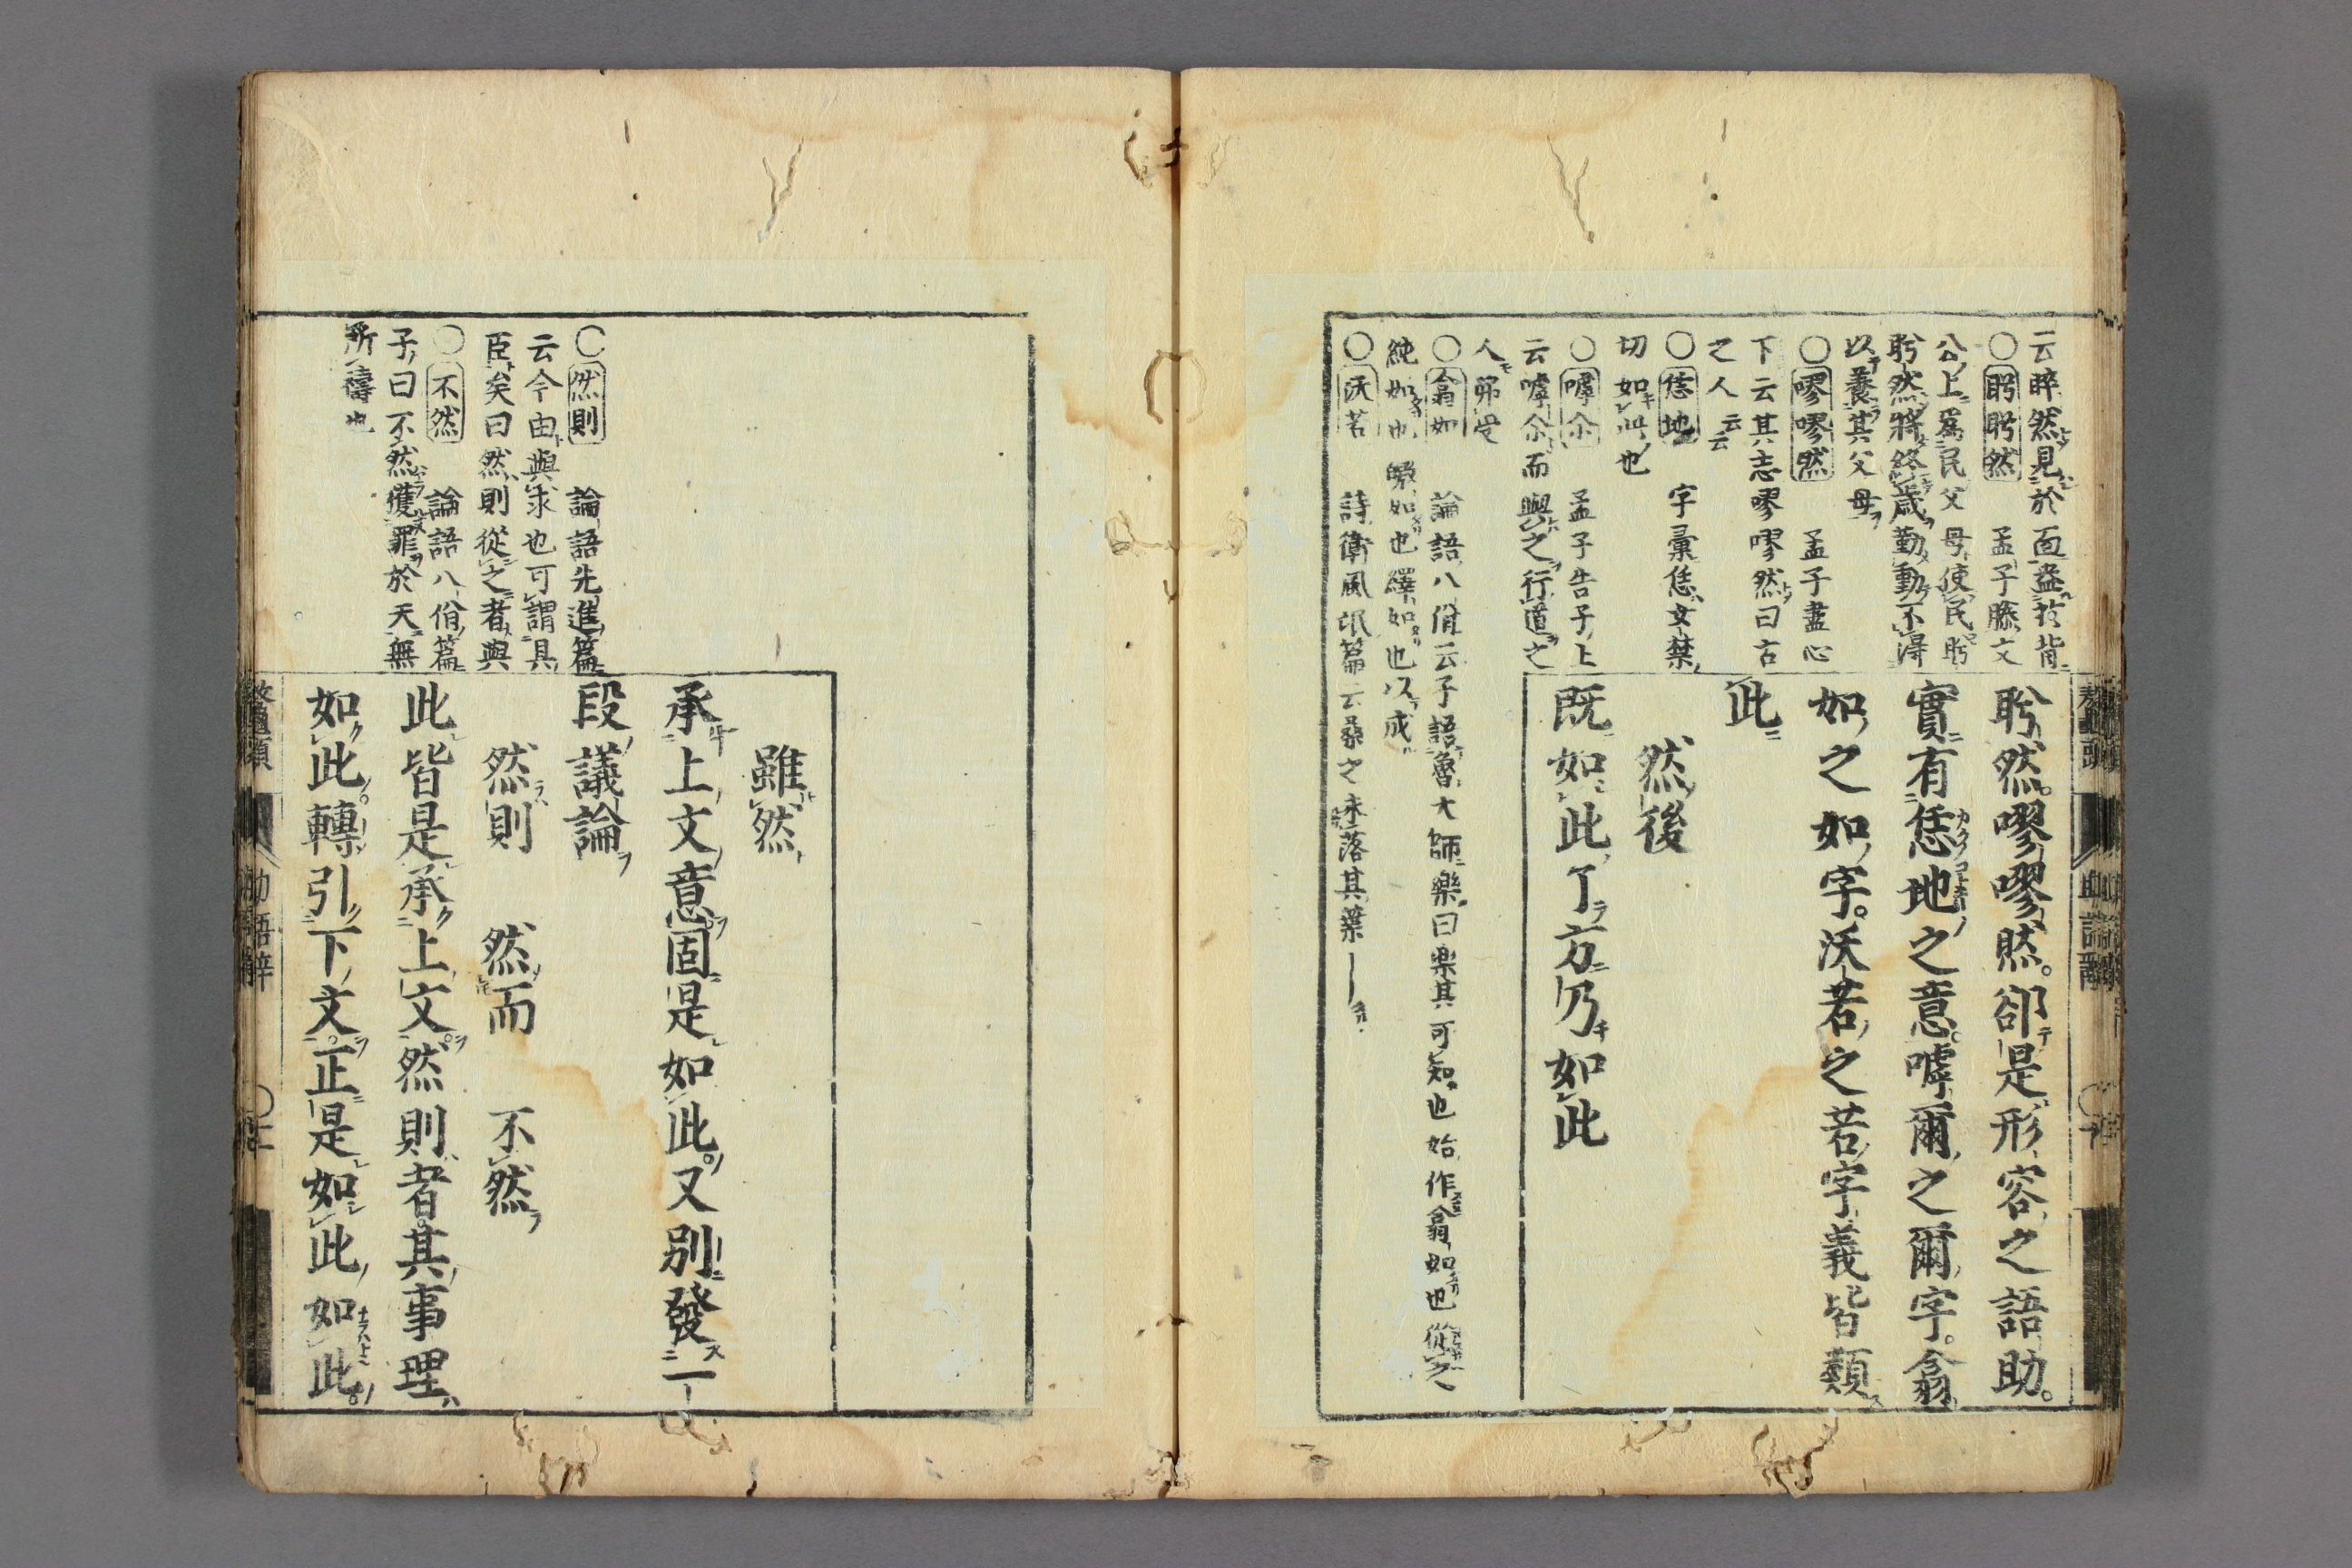 云睟然見於面盎於背
○盻盻然　孟子滕文
公上爲民父母使民盻
盻然將終歳勤動不得
以養其父母
○嘐嘐然　孟子盡心
下云其志嘐嘐然曰古
之人云云
○恁地　字彙恁女禁
切如此也
○嘑尒　孟子告子上
云嘑尒而與之行道之
人弗受
○翕如　論語八佾云子語魯大師樂曰樂其可知也始作翕如也從之
純如也皦如也繹如也以成
○沃若　詩衛風氓篇云桑之未落其葉
盻然。嘐嘐然。卻是形容之語助。
實有恁地之意。嘑爾之爾字。翕
如之如字。沃若之若字義皆類
此
然後
既如此了方乃如此
○然則　論語先進篇
云今由與求也可謂具
臣矣曰然則從之者與
○不然　論語八佾篇
子曰不然獲罪於天無
所禱也
雖然
承上文意固是如此。又別發一
段議論
然則　然而　不然
此皆是承上文。然則者其事理
如此。轉引下文。正是如此如此。